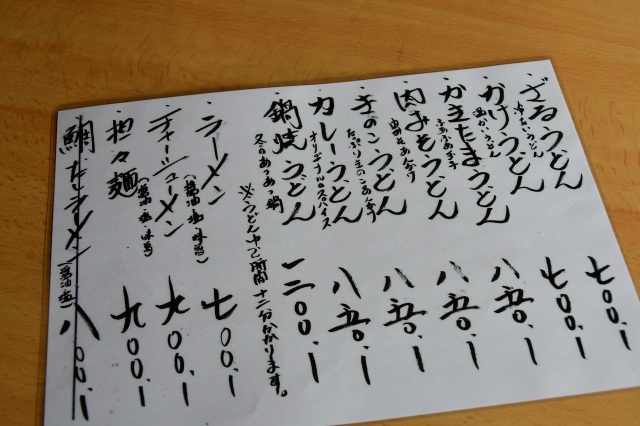 ・ざるうどん 七〇〇.ー
冷たいうどん
・かけうどん 七〇〇.ー
温かいうどん
・かきたまうどん 八五〇.ー
ふあふあ玉子
・肉みそうどん 八五〇.ー
・きのこうどん 八五〇.ー
たっぷりきのこあんかけ
・カレーうどん 八五〇.ー
オリジナルスパイス
・鍋焼うどん 一二〇〇.ー
冬のあつあつ鍋
※うどんゆで時間十二分かかります。
・ラーメン 七〇〇.ー
(醤油 塩 味噌)
・チャーシューメン 九〇〇.ー
(醤油 塩 味噌)
・担々麺 九〇〇.ー
・鯛だしラーメン 八〇〇.ー
(醤油 塩)